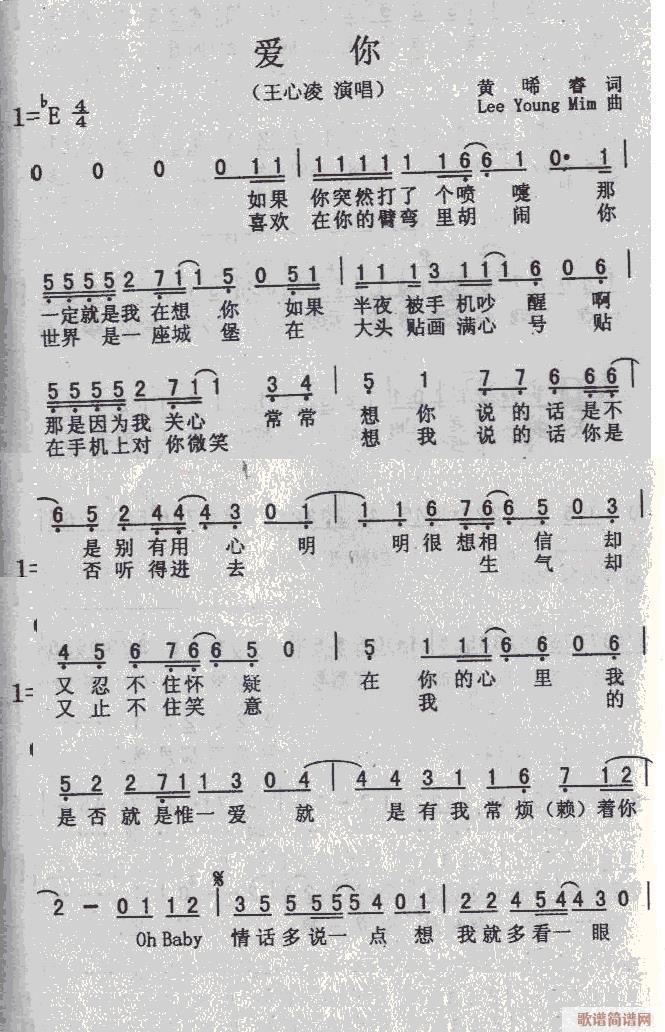 爱 你
（王心凌 演唱）
黄 唏 睿 词
1=♭E 4/4
Lee Young Mim 曲
0 0 0 0 1 1 | 1 1 1 1 1 1 6 6 1 0· 1 |
如果 你突然打了 个喷 嚏 那
喜欢 在你的臂弯 里胡 闹 你
5 5 5 5 2 7 1 1 5 0 5 1 | 1 1 1 3 1 1 1 6 0 6 |
一定就是我 在想 你 如果 半夜 被手 机吵 醒 啊
世界 是一 座城 堡 在 大头 贴画 满心 号 贴
5 5 5 5 2 7 1 1 3 4 | 5 1 7 7 6 6 6
那是因为我 关心 常 常 想 你 说 的 话 是不
在手机上对 你微笑 想 我 说 的 话 你是
6 5 2 4 4 4 3 0 1 | 1 1 6 7 6 6 5 0 3 |
是别 有用 心 明 明很想相 信 却
1= 否听 得进 去 生 气 却
4 5 6 7 6 6 5 0 | 5 1 1 1 6 6 0 5 |
又 忍 不 住怀 疑 在 你 的心 里 我
1= 又 止 不 住笑 意 我 的
5 2 2 7 1 1 3 0 4 | 4 4 3 1 1 6 7 1 2
是 否 就 是惟一 爱 就 是 有 我 常 烦（赖）着你
2 － 0 1 1 2 | 3 5 5 5 5 5 4 0 1 | 2 2 4 5 4 4 3 0 |
Oh Baby 情 话 多 说一 点 想 我 就 多 看一 眼
歌谱简谱网